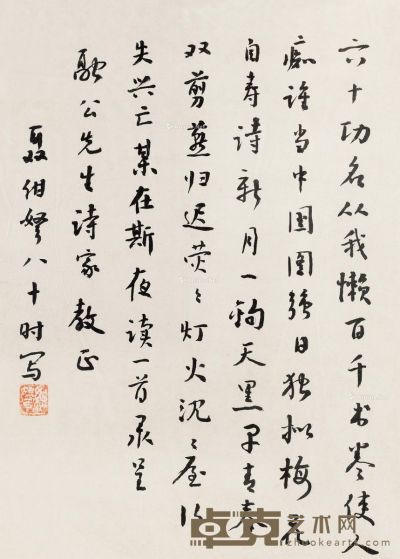 六十功名从我懒百千书卷使人
痴谁当中国图强日独拟梅花
自寿诗新月一钩天黑早青春
双剪燕归迟荧々灯火沈々屋得
失兴亡某在斯夜读一首录呈
融公先生诗家教正
聂绀弩八十时写
卓克艺术网
zhuokearts.com